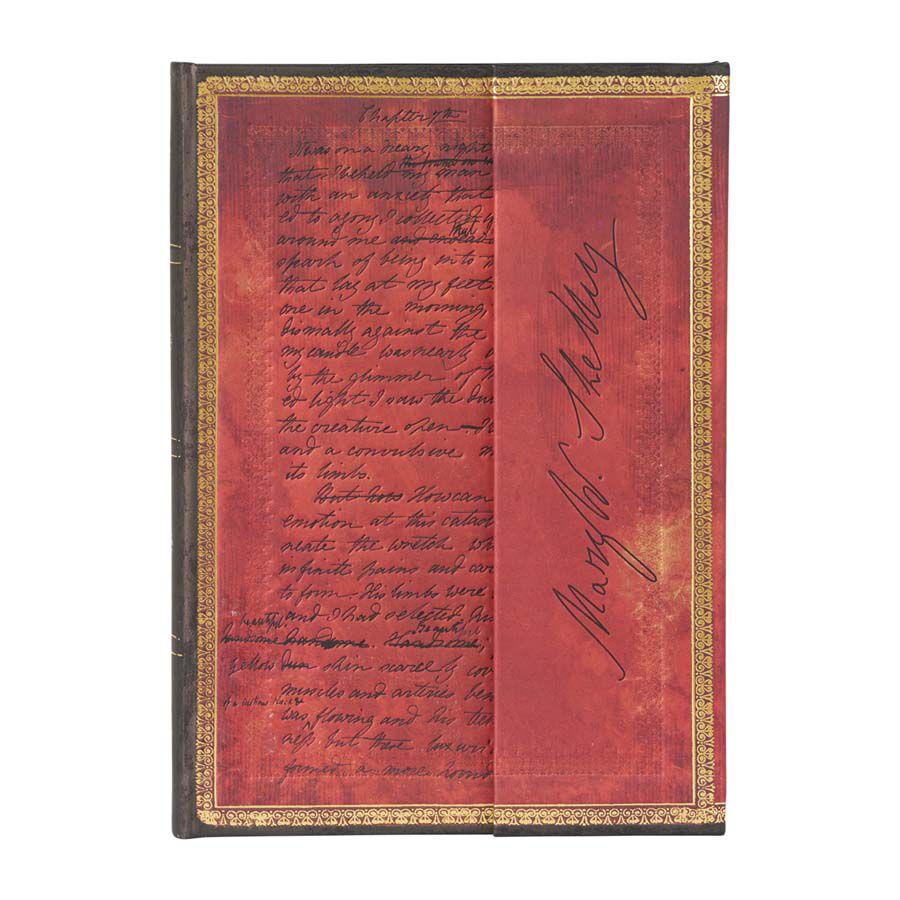 Chapter 7th
It was on a dreary night
that I beheld my man
with an anxiety that
ed to agony, I collected
around me and endeav
spark of being into
that lay at my feet
one in the morning,
dismally against the
my candle was nearly
by the glimmer of
ed light I saw the du
the creature open
and a convulsive
its limbs.
But how How can
emotion at this catas
reate the wretch wh
infinite pains and car
to form. His limbs were
and I had selected his
beautiful. Beautiful
handsome handsome. Handsome,
yellow dun skin scarcely cov
muscles and arteries ben
was flowing and his tee
ness but these luxuri
formed a more horri
Mary W. Shelley